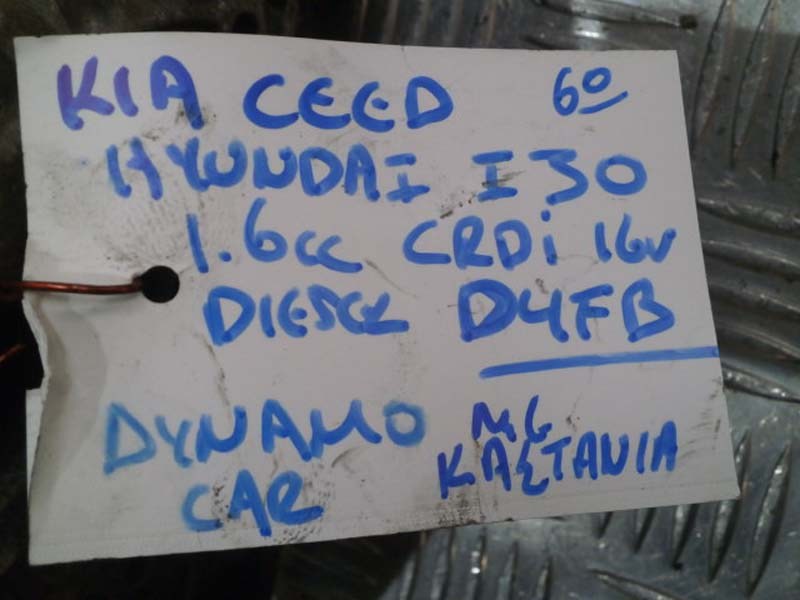 KIA CEED 60
HYUNDAI I30
1.6cc CRDi 16v
DIESEL D4FB
DYNAMO
CAR
ΜΕ
ΚΑΣΤΑΝΙΑ